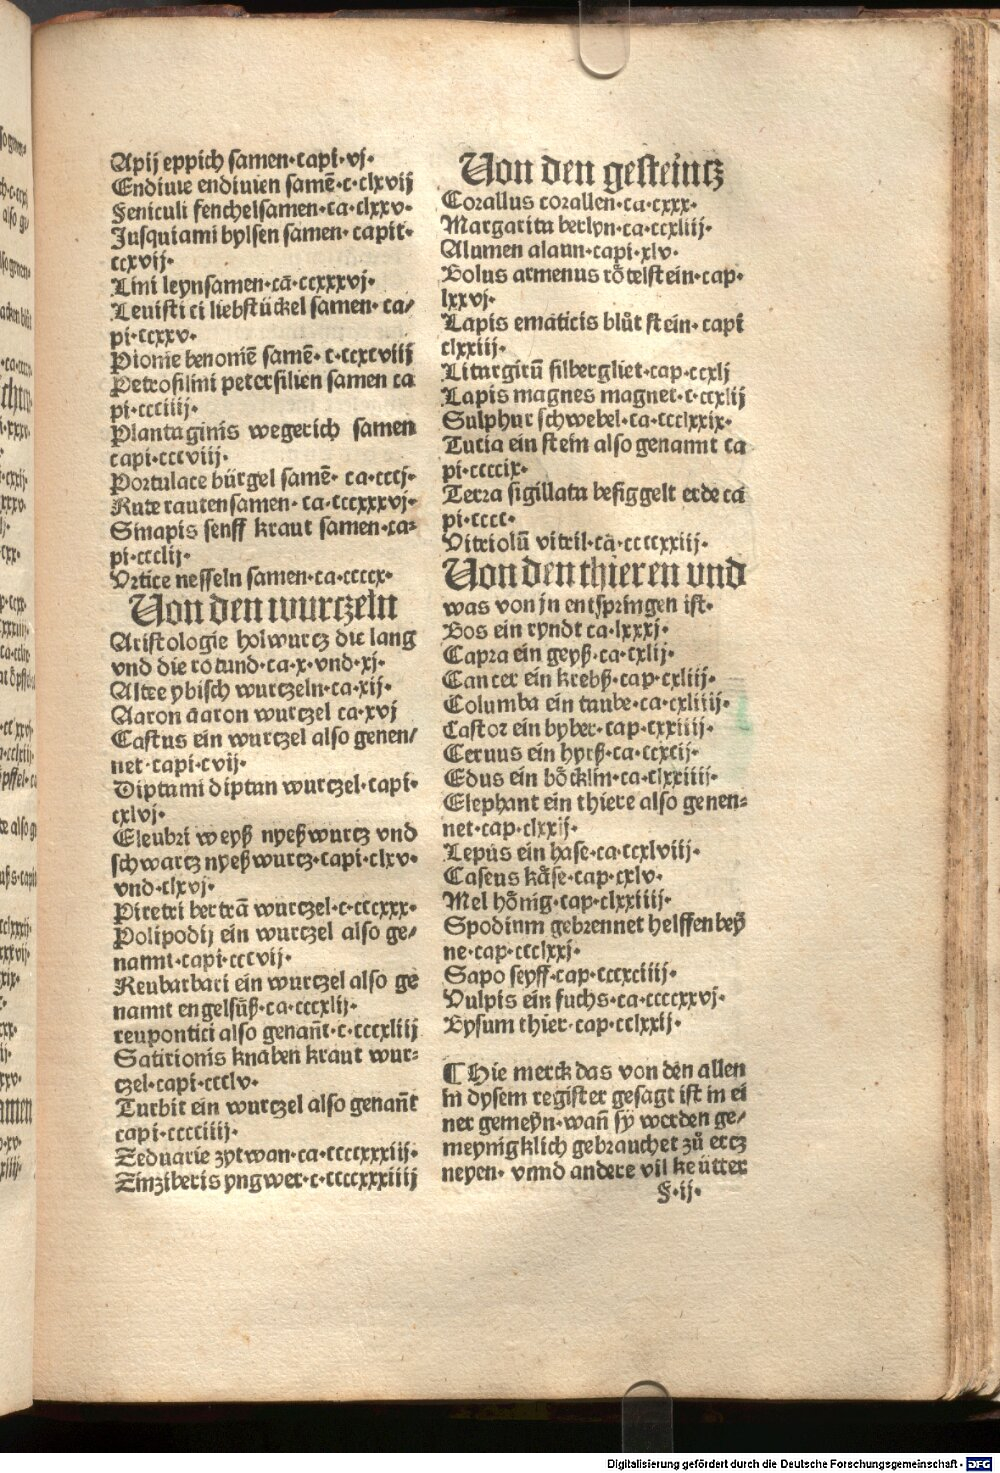 Apij eppich samen·capi·vj·
Endiuie endiuien samē·c·clxvij
Feniculi fenchelsamen·ca·clxxv·
Jusquiami bylsen samen·capit·
ccxvij·
Lini leynsamen·cā·ccxxxvj·
Leuistici liebstückel samen·ca/
pi·ccxxv·
Pionie benoniē samē·c·ccxcviij
Petrosilini petersilien samen ca
pi·ccciiij·
Plantaginis wegerich samen
capi·cccviij·
Portulace bürgel samē·ca·cccj·
Rute rautensamen·ca·cccxxxvj·
Sinapis senff kraut samen·ca⸗
pi·ccclij·
Vrtice nesseln samen·ca·ccccx·
Von den wurczeln
Aristologie holwurcz die lang
vnd die rotund·ca·x·vnd·xj·
Altee ybisch wurczeln·ca·xij·
Aaron aaron wurczel ca·xvj
Castus ein wurczel also genen/
net·capi·cvij·
Diptami diptan wurczel·capi·
cxlvj·
Eleubri weyß nyeßwurcz vnd
schwarcz nyeßwurcz·capi·clxv·
vnd·clxvj·
Piretri bertrā wurczel·c·cccxxx·
Polipodij ein wurczel also ge⸗
nannt·capi·cccvij·
Reubarbari ein wurczel also ge
namt engelsüß·ca·cccxlij·
reupontici also genañt·c·cccxliij
Satirionis knaben kraut wur⸗
czel·capi·ccclv·
Turbit ein wurczel also genañt
capi·cccciiij·
Zeduarie zytwan·ca·ccccxxxiij·
Zinziberis yngwer·c·ccccxxxiiij
Von den gesteincz
Corallus corallen·ca·cxxx·
Margarita berlyn·ca·ccxliij·
Alumen alaun·capi·xlv·
Bolus armenus rötelstein·cap·
lxxvj·
Lapis ematicis blůt stein·capi
clxxiij·
Litargirū silbergliet·cap·ccxlj
Lapis magnes magnet·c·ccxlij
Sulphur schwebel·ca·ccclxxix·
Tucia ein stein also genannt ca
pi·ccccix·
Terra sigillata besiggelt erde ca
pi·cccc·
Vitriolū vitril·cā·ccccxxiij·
Von den thieren vnd
was von jn entspringen ist·
Bos ein ryndt ca·lxxxj·
Capra ein geyß·ca·cxlij·
Cancer ein krebß·cap·cxliij·
Columba ein taube·ca·cxliiij·
Castor ein byber·cap·cxxiiij·
Ceruus ein hyrß·ca·ccxcij·
Edus ein böcklin·ca·clxxiiij·
Elephant ein thiere also genen⸗
net·cap·clxxij·
Lepus ein hase·ca·ccxlviij·
Caseus käse·cap·cxlv·
Mel hönig·cap·clxxiiij·
Spodium gebrennet helffenbeÿ
ne·cap·ccclxxj·
Sapo seyff·cap·cccxciiij·
Vulpis ein fuchs·ca·ccccxxvj·
Bysum thier·cap·cclxxij·
¶ Hie merck das von den allen
in dysem register gesagt ist in ei
ner gemeÿn·wañ sÿ werden ge/
meynigklich gebrauchet zů ercz
neyen·vnnd andere vil kreütter
F·ij·
Digitalisierung gefördert durch die Deutsche Forschungsgemeinschaft - DFG